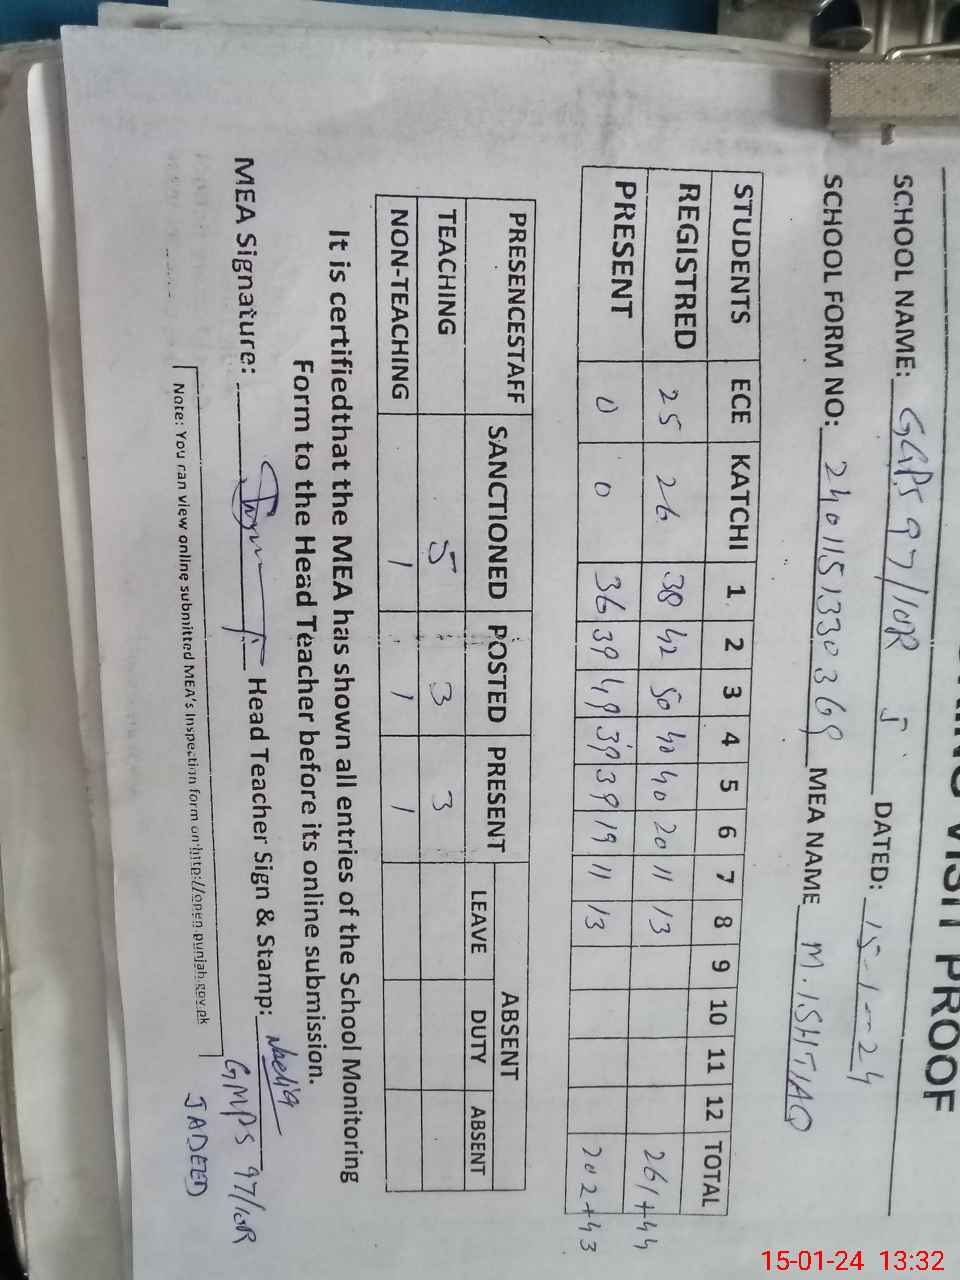 VISIT PROOF
SCHOOL NAME: GGPS 97/10R J DATED: 15-1-24
SCHOOL FORM NO: 2401151330369 MEA NAME M.ISHTIAQ
STUDENTS ECE KATCHI 1 2 3 4 5 6 7 8 9 10 11 12 TOTAL
REGISTRED 25 26 38 42 50 40 40 20 11 13 261+44
PRESENT 0 0 36 39 49 39 39 19 11 13 202+43
PRESENCESTAFF SANCTIONED POSTED PRESENT ABSENT
LEAVE DUTY ABSENT
TEACHING 5 3 3
NON-TEACHING 1 1 1
It is certifiedthat the MEA has shown all entries of the School Monitoring
Form to the Head Teacher before its online submission.
MEA Signature: Head Teacher Sign & Stamp:
GMPS 97/10R
JADEED
Note: You can view online submitted MEA's Inspection form on http://open.punjab.gov.pk
15-01-24 13:32